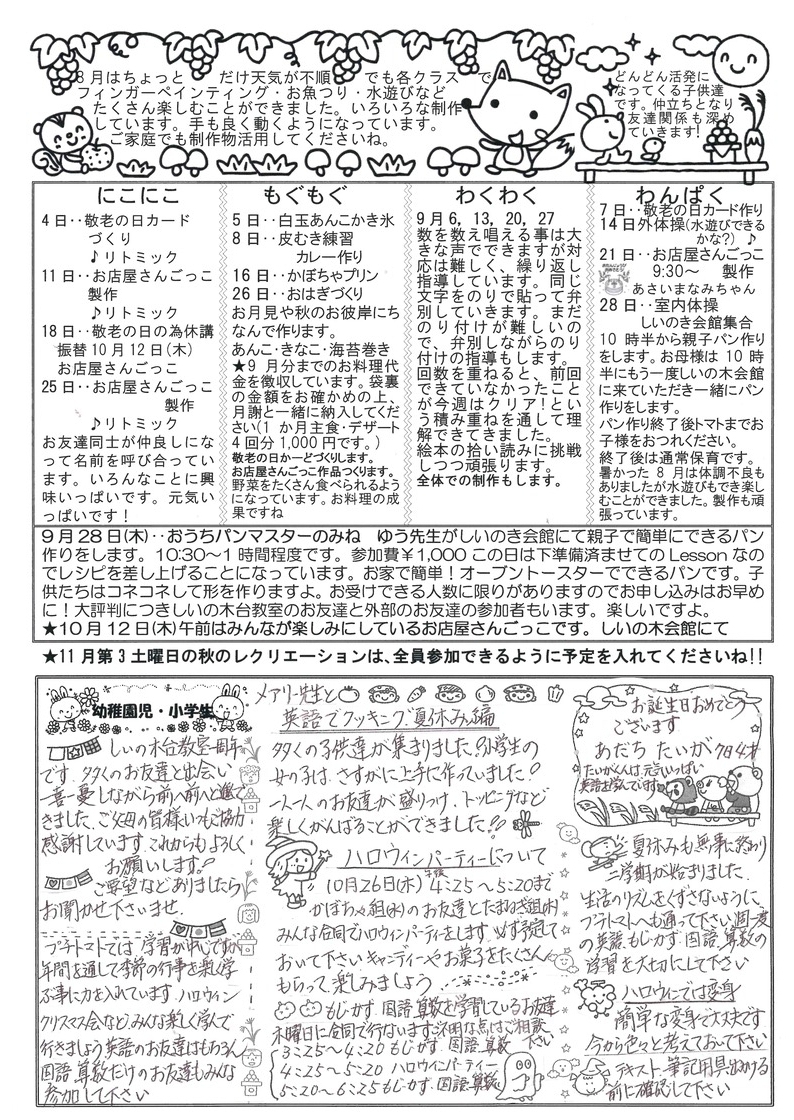 8月はちょっと だけ天気が不順 でも各クラス で
フィンガーペインティング・お魚つり・水遊びなど
たくさん楽しむことができました。いろいろな制作
しています。手も良く動くようになっています。
ご家庭でも制作物活用してくださいね。
どんどん活発に
なってくる子供達
です。仲立ちとなり
友達関係も深め
ていきます!
にこにこ
4日‥敬老の日カード
づくり
♪リトミック
11日‥お店屋さんごっこ
製作
♪リトミック
18日‥敬老の日の為休講
振替10月12日(木)
お店屋さんごっこ
25日‥お店屋さんごっこ
製作
♪リトミック
お友達同士が仲良しにな
って名前を呼び合ってい
ます。いろんなことに興
味いっぱいです。元気い
っぱいです!
もぐもぐ
5日‥白玉あんこかき氷
8日‥皮むき練習
カレー作り
16日‥かぼちゃプリン
26日‥おはぎづくり
お月見や秋のお彼岸にち
なんで作ります。
あんこ・きなこ・海苔巻き
★9月分までのお料理代
金を徴収しています。袋裏
の金額をお確かめの上、
月謝と一緒に納入してくだ
さい(1か月主食・デザート
4回分1,000円です。)
敬老の日かーどづくりします。
お店屋さんごっこ作品つくります。
野菜をたくさん食べられるよう
になっています。お料理の成
果ですね
わくわく
9月6, 13, 20, 27
数を数え唱える事は大
きな声でできますが対
応は難しく、繰り返し
指導しています。同じ
文字をのりで貼って弁
別していきます。まだ
のり付けが難しいの
で、弁別しながらのり
付けの指導もします。
回数を重ねると、前回
できていなかったこと
が今週はクリア!とい
う積み重ねを通して理
解できてきました。
絵本の拾い読みに挑戦
しつつ頑張ります。
全体での制作もします。
わんぱく
7日‥敬老の日カード作り
14日外体操(水遊びできる
かな?) ♪
21日‥お店屋さんごっこ
9:30〜 製作
あさいまなみちゃん
28日‥室内体操
しいのき会館集合
10時半から親子パン作り
をします。お母様は10時
半にもう一度しいの木会館
に来ていただき一緒にパン
作りをします。
パン作り終了後トマトまでお
子様をおつれください。
終了後は通常保育です。
暑かった8月は体調不良も
ありましたが水遊びもでき楽し
むことができました。製作も頑
張っています。
9月28日(木)‥おうちパンマスターのみね ゆう先生がしいのき会館にて親子で簡単にできるパン
作りをします。10:30〜1時間程度です。参加費¥1,000この日は下準備済ませてのLessonなの
でレシピを差し上げることになっています。お家で簡単!オーブントースターでできるパンです。子
供たちはコネコネして形を作りますよ。お受けできる人数に限りがありますのでお申し込みはお早め
に!大評判につきしいの木台教室のお友達と外部のお友達の参加者もいます。楽しいですよ。
★10月12日(木)午前はみんなが楽しみにしているお店屋さんごっこです。しいの木会館にて
★11月第3土曜日の秋のレクリエーションは、全員参加できるように予定を入れてくださいね!!
幼稚園児・小学生
しいの木台教室一周年
です。多くのお友達と出会い
一喜一憂しながら前へ前へと進んで
きました。ご父母の皆様いつもご協力
感謝しています。これからもよろしく
お願いします。!
ご要望などありましたら
お聞かせ下さいませ。
プチトマトでは 学習が中心ですが
年間を通して季節の行事を楽しく学
ぶ事に力を入れています ハロウィン
クリスマス会など、みんな楽しく学んで
行きましょう 英語のお友達はもちろん
国語 算数だけのお友達もみんな
参加して下さい
メアリー先生と
英語でクッキング夏休み編
多くの子供達が集まりました!小学生の
女の子は、さすがに上手に作っていました!
一人一人のお友達が盛りつけ、トッピングなど
楽しくがんばることができました!!
ハロウィンパーティーについて
10月26日(木)午後4:25〜5:20まで
かぼちゃ組(水)のお友達とたまねぎ組(木)
みんな合同でハロウィンパーティをします 必ず予定して
おいて下さい キャンディーやお菓子をたくさん
もらって 楽しみましょう
もじかず 国語 算数を学習しているお友達
木曜日に合同で行ないます ご不明な点はご相談
下さい
3:25〜4:20 もじかず 国語 算数
4:25〜5:20 ハロウィンパーティー
5:20〜6:25 もじかず 国語 算数
お誕生日おめでとう
ございます
あだち たいが 7日4才
たいがくんは、元気いっぱい
英語を学んでいます
夏休みも無事に終わり
二学期が始まりました。
生活のリズムをくずさないように、
プチトマトへも通って下さい 週一度
の英語、もじかず 国語、算数の
学習を大切にして下さい
ハロウィンでは変身
簡単な変身で大丈夫です
今から色々と考えておいて下さい
テキスト、筆記用具出かける
前に確認して下さい